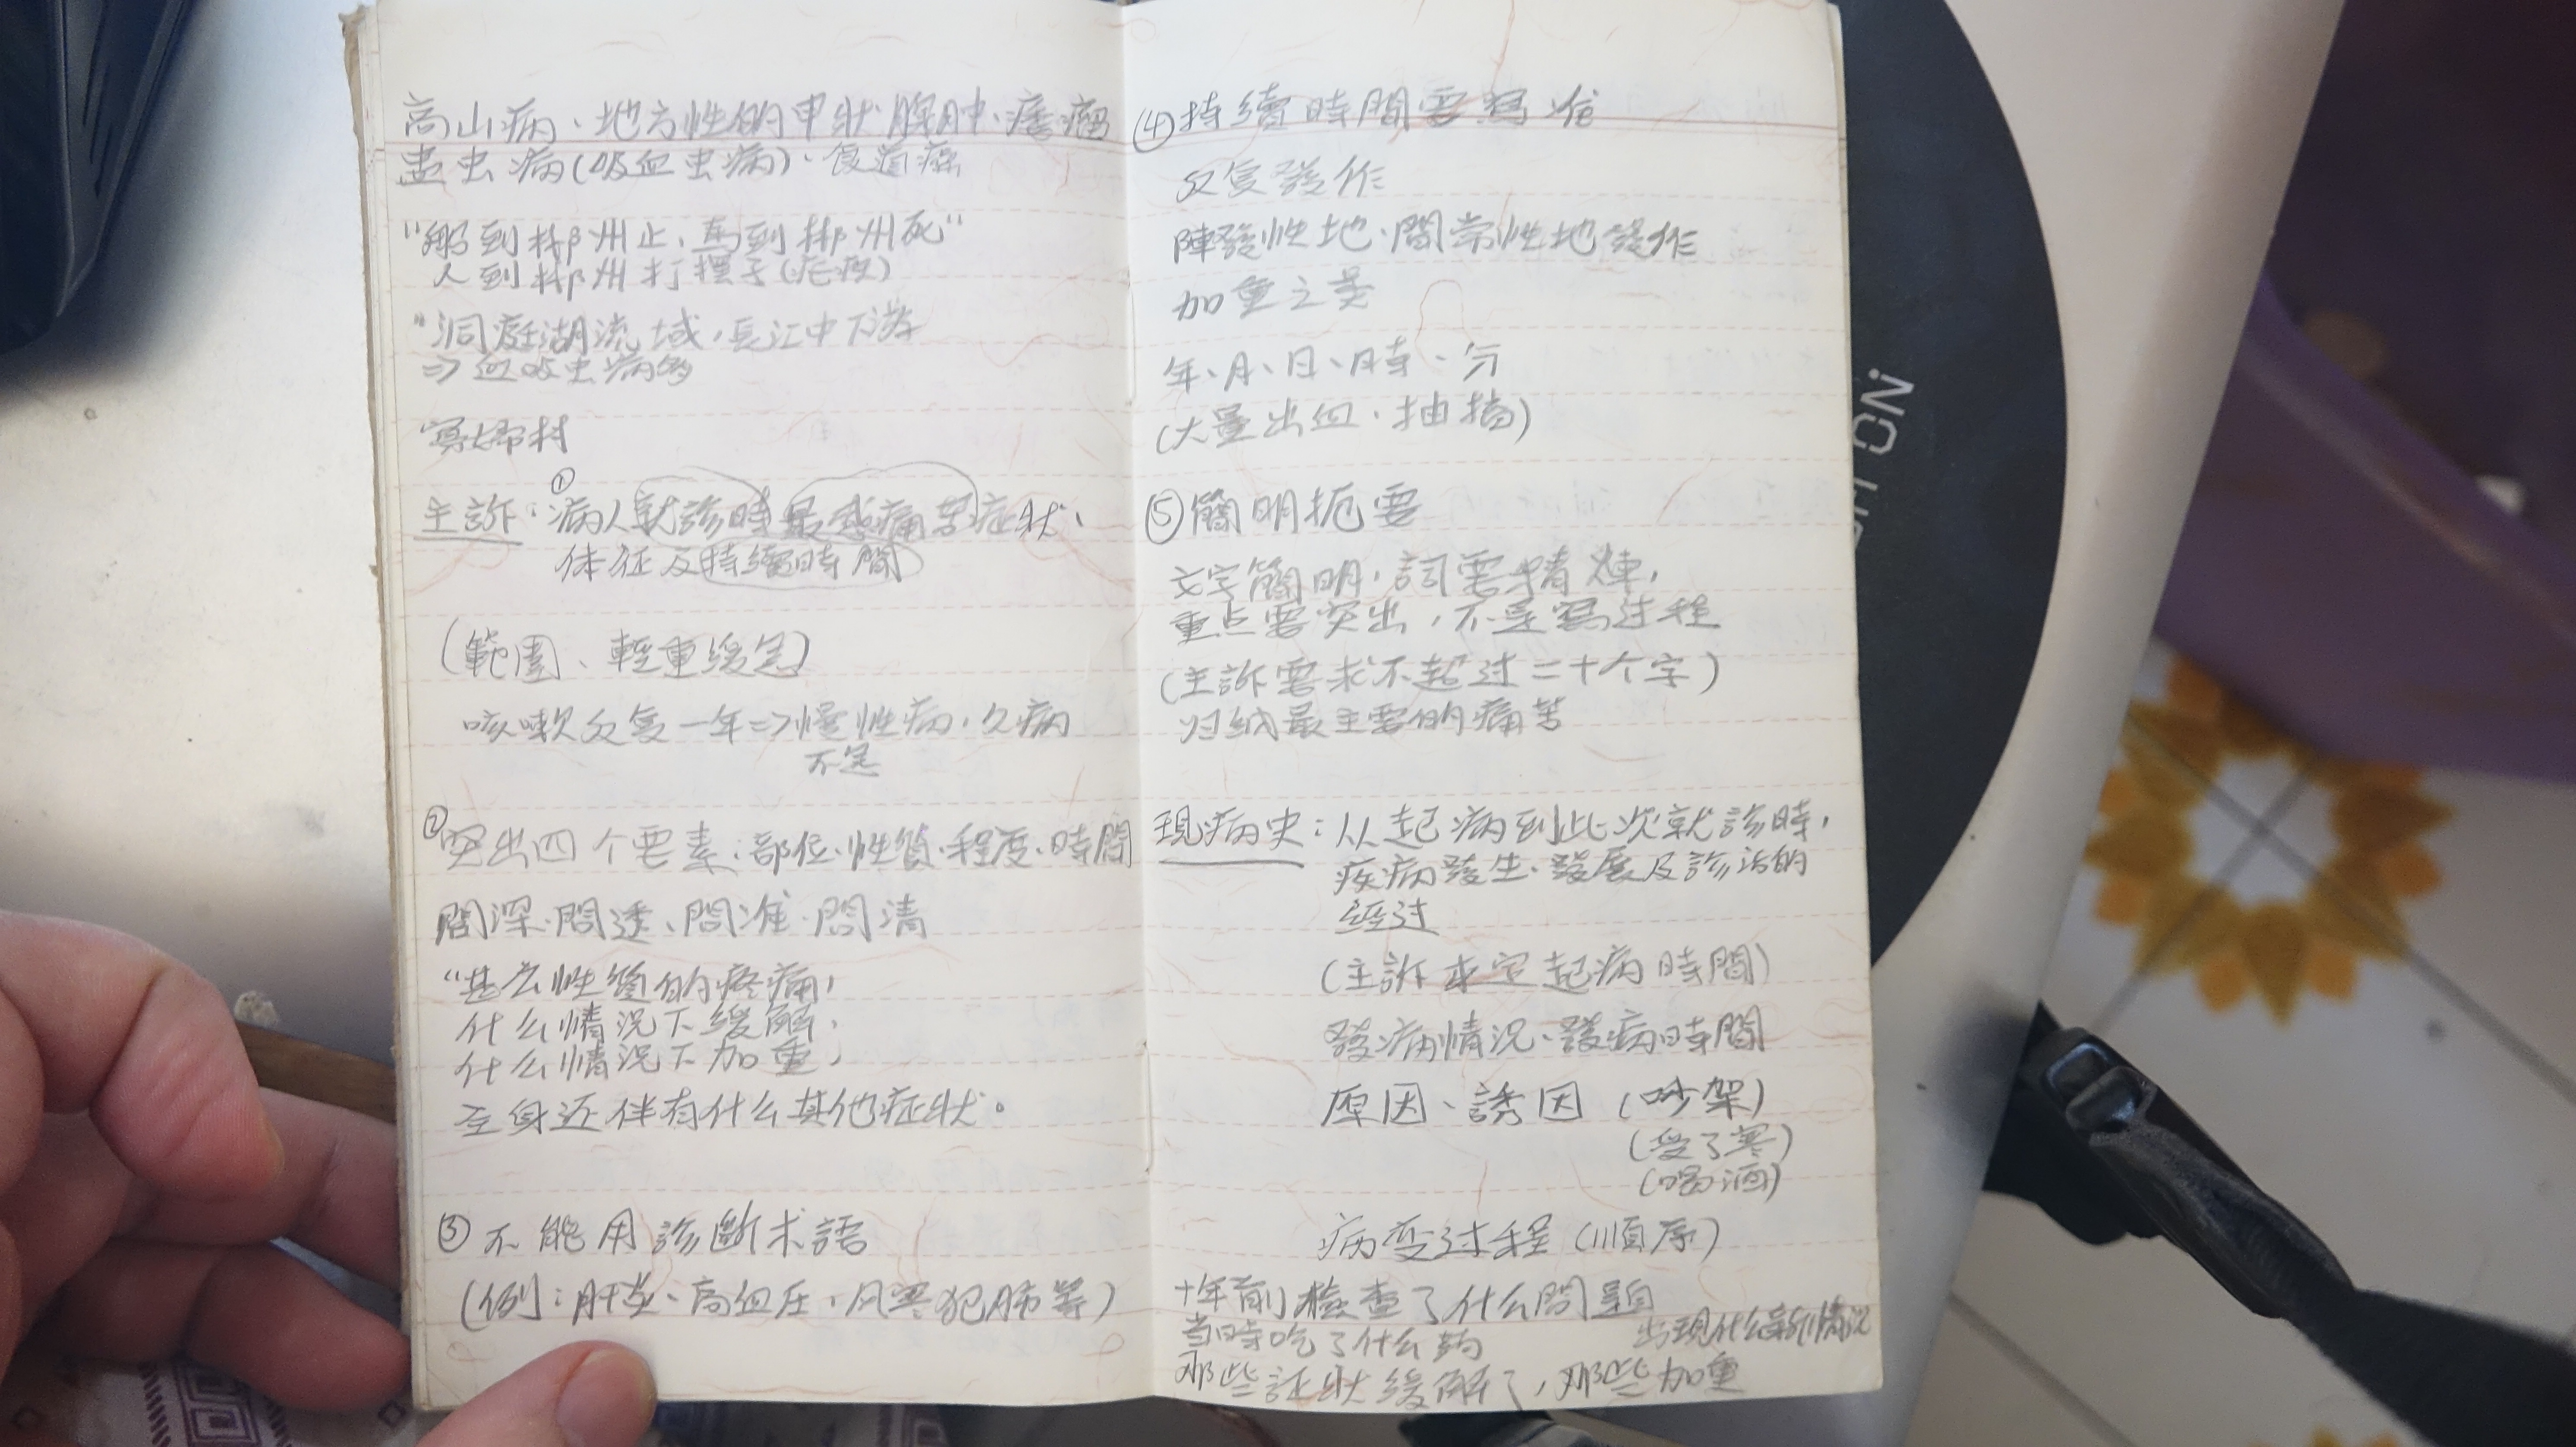 高山病、地方性的甲狀腺肿、瘻瘤
蛊虫病(吸血虫病)、食道癌
"船到郴州止,馬到郴州死"
人到郴州打摆子(疟疾)
"洞庭湖流域,長江中下游
⇒血吸虫病多
寡婦村
主訴:①病人就診時最感痛苦症狀、
体征及持續時間
(範圍、輕重緩急)
咳嗽反复一年⇒慢性病,久病
不急
②突出四个要素:部位、性質、程度、時間
問深、問透、問准、問清
"甚么性質的疼痛,
什么情況下緩解,
什么情況下加重,
至身近伴有什么其他症狀。
③不能用診斷术語
(例:肝炎、高血压,风寒犯肺等)
(4)持續時間要寫准
反复發作
陣發性地、間常性地發作
加重之差
年、月、日、時、分
(大量出血、抽搐)
⑤簡明扼要
文字簡明,詞要精煉,
重点要突出,不是寫过程
(主訴要求不超过二十个字)
归納最主要的痛苦
現病史:从起病到此次就診時,
疾病發生、發展及診治的
经过
(主訴来定起病時間)
發病情況、發病時間
原因、誘因(吵架)
(受了寒)
(喝酒)
病变过程(順序)
十年前檢查了什么問題
当時吃了什么药
出現什么新情況
那些証狀緩解了,那些加重
ON